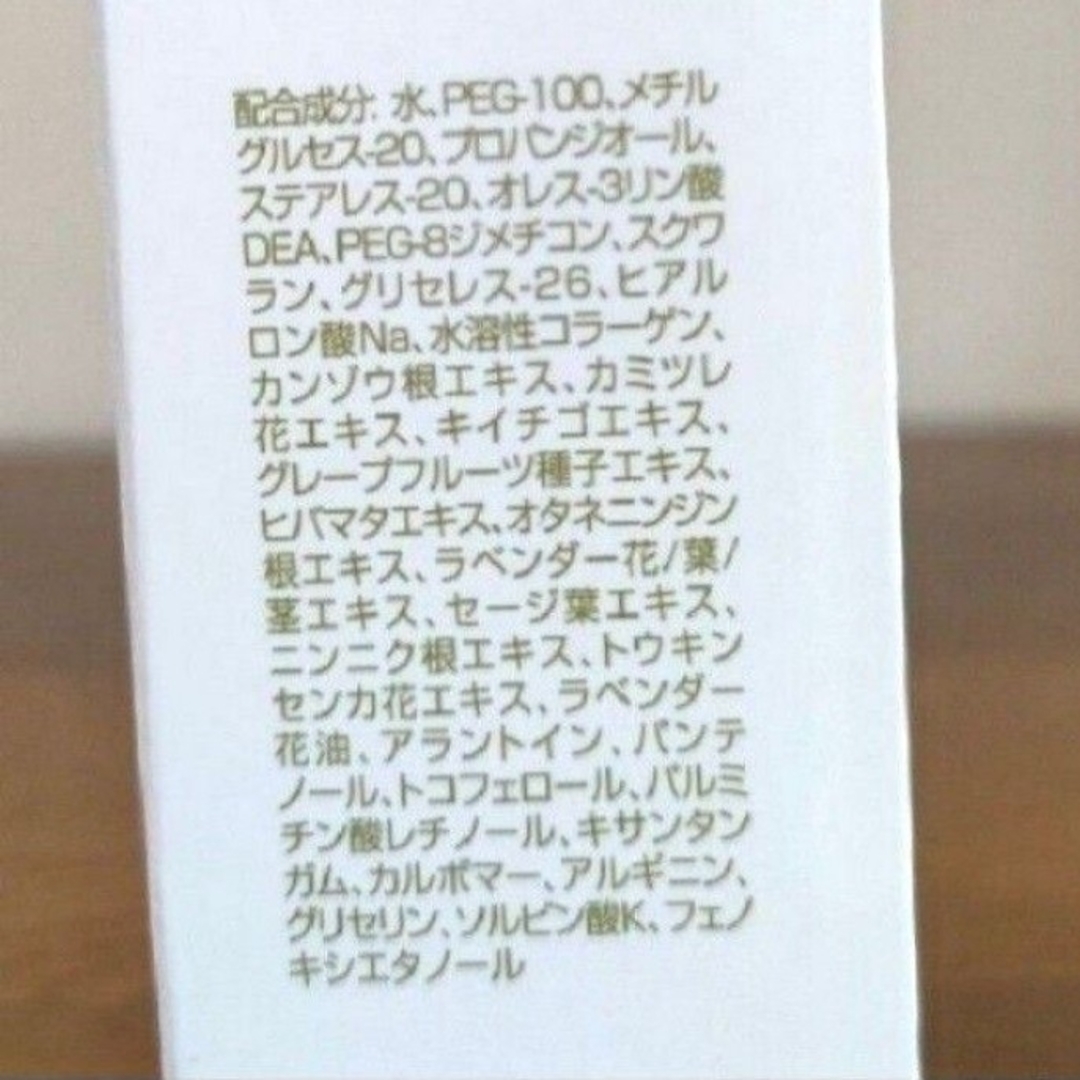 配合成分: 水、PEG-100、メチル
グルセス-20、プロパンジオール、
ステアレス-20、オレス-3リン酸
DEA、PEG-8ジメチコン、スクワ
ラン、グリセレス-26、ヒアル
ロン酸Na、水溶性コラーゲン、
カンゾウ根エキス、カミツレ
花エキス、キイチゴエキス、
グレープフルーツ種子エキス、
ヒバマタエキス、オタネニンジン
根エキス、ラベンダー花/葉/
茎エキス、セージ葉エキス、
ニンニク根エキス、トウキン
センカ花エキス、ラベンダー
花油、アラントイン、パンテ
ノール、トコフェロール、パルミ
チン酸レチノール、キサンタン
ガム、カルボマー、アルギニン、
グリセリン、ソルビン酸K、フェノ
キシエタノール